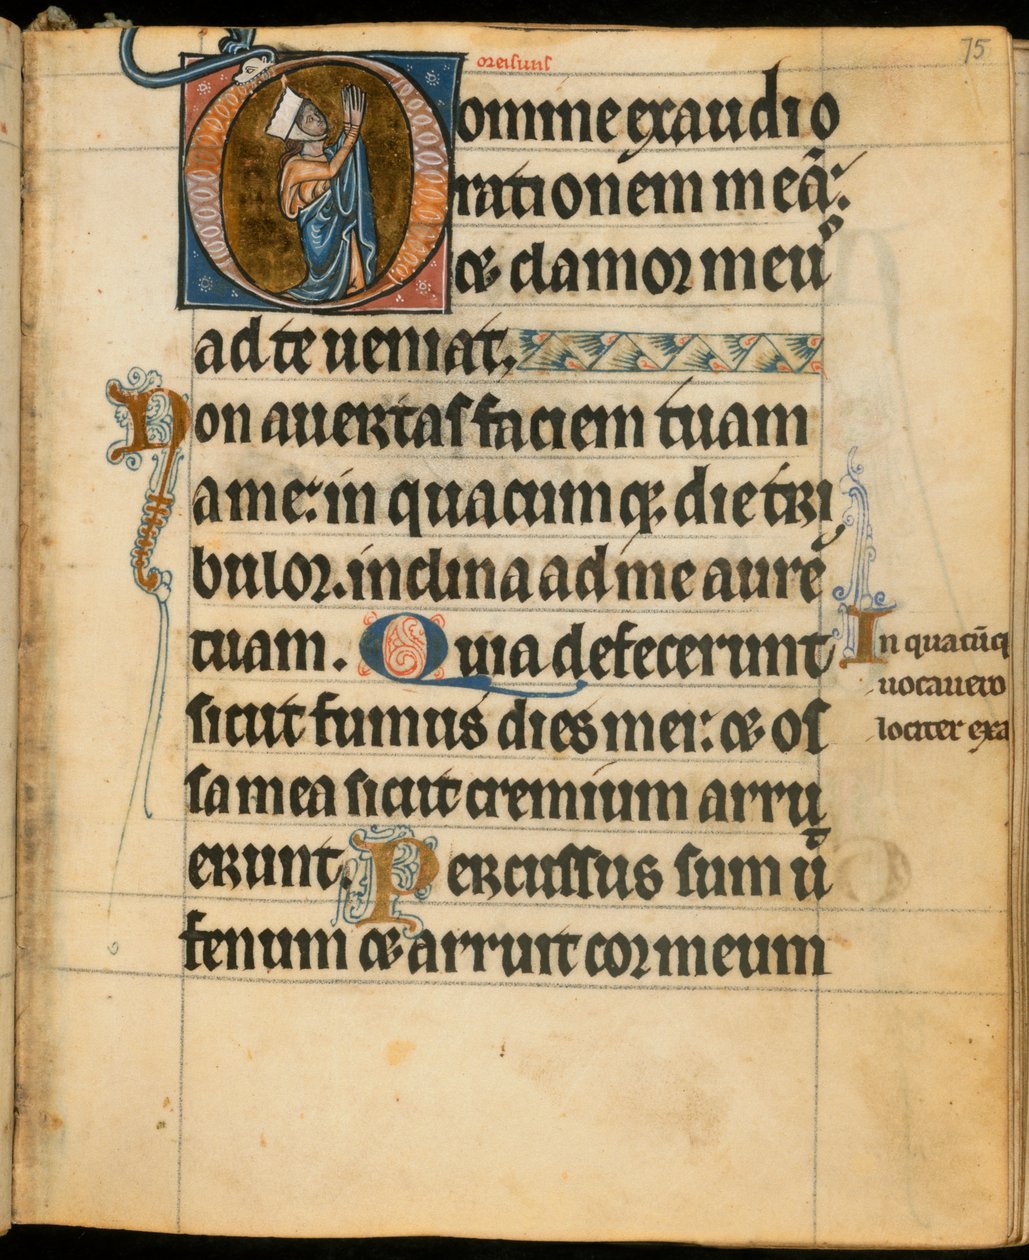 75
oreisuns
Domine exaudi o
rationem meā:
⁊ clamor meuˢ
ad te ueniat,
Non auertas faciem tuam
a me: in quacumq; die tri
bulor. inclina ad me aurē
tuam. Quia defecerunt
sicut fumus dies mei: ⁊ os
sa mea sicut cremium arru
erunt. Percussus sum ut
fenum ⁊ arruit cor meum
In quacūq
uocauero
lociter exa